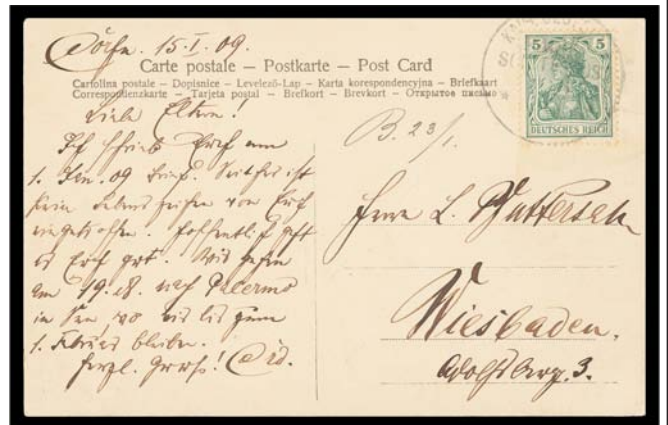 15.I.09.
Carte postale – Postkarte – Post Card
Cartolina postale – Dopisnice – Levelező-Lap – Karta korespondencyjna – Briefkaart
Correspondenzkarte – Tarjeta postal – Brefkort – Brevkort – Открытое письмо
5 5
DEUTSCHES REICH
Liebe Eltern!
B. 23/1.
Ich schrieb Euch am
1. Jan. 09 Brief. Seither ist
kein Lebenszeichen von Euch
eingetroffen. Hoffentlich geht
es Euch gut. Wir gehen
am 19. nach Palermo
in See, wo wir bis zum
1. Februar bleiben.
Herzl. Gruß!
Herrn L.
Wiesbaden.
3.